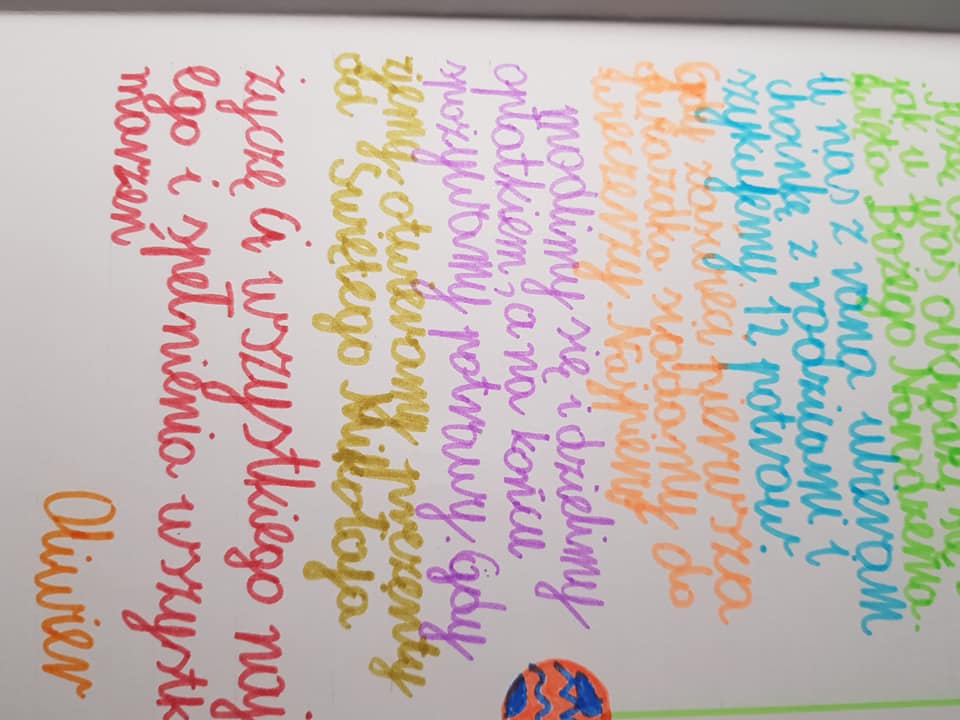 jak u was
Święta Bożego Narodzenia.
U nas z rana ubieram
choinkę z rodzicami i
szykujemy 12 potraw.
Gdy zaświeci pierwsza
gwiazdka siadamy do
wieczerzy. Najpierw
modlimy się i dzielimy
opłatkiem, a na końcu
spożywamy potrawy. Gdy
zjemy otwieramy prezenty
od Świętego Mikołaja
życzę Ci wszystkiego naj
ego i spełnienia wszystk
marzeń
Oliwier